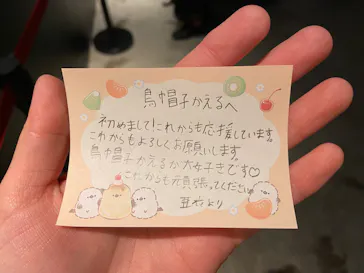 烏帽子かえるへ
初めまして!これからも応援しています。
これからもよろしくお願いします。
烏帽子かえるが大好きです♡
これからも頑張ってください
より